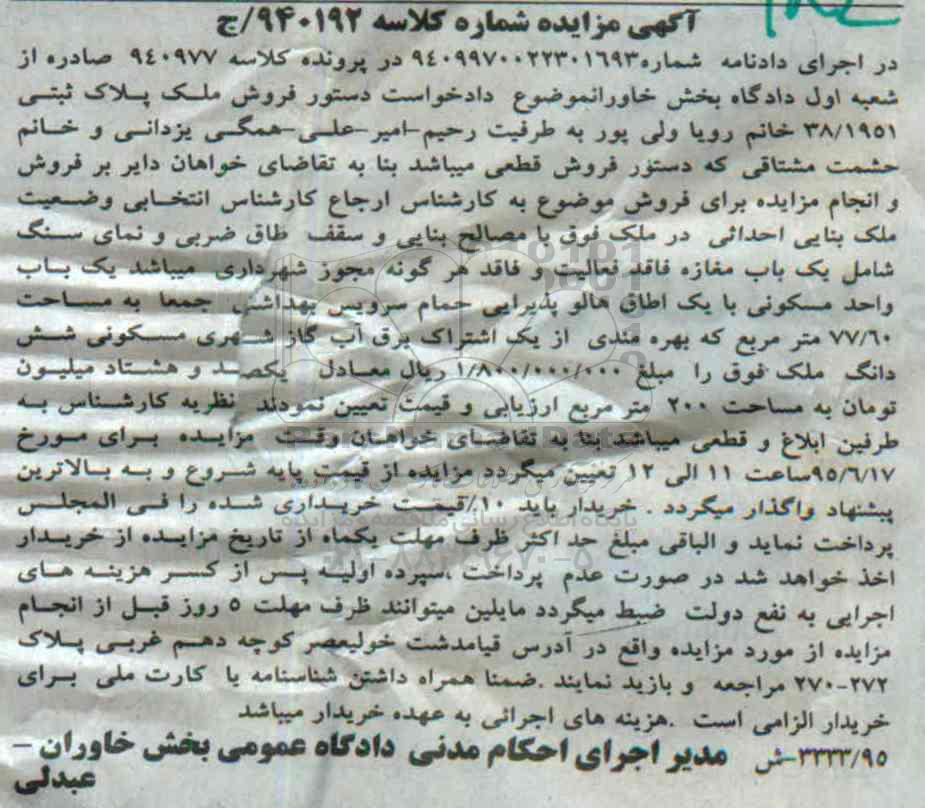 آگهی مزایده شماره کلاسه ۹۴۰۱۹۲/ج
در اجرای دادنامه شماره۹٤۰۹۹۷۰۰۲۲۳۰۱٦۹۳ در پرونده کلاسه ۹٤۰۹۷۷ صادره از
شعبه اول دادگاه بخش خاورانموضوع دادخواست دستور فروش ملک پلاک ثبتی
۳۸/۱۹٥۱ خانم رویا ولی پور به طرفیت رحیم-امیر-علی-همگی یزدانی و خانم
حشمت مشتاقی که دستور فروش قطعی میباشد بنا به تقاضای خواهان دایر بر فروش
و انجام مزایده برای فروش موضوع به کارشناس ارجاع کارشناس انتخابی وضعیت
ملک بنایی احداثی در ملک فوق با مصالح بنایی و سقف طاق ضربی و نمای سنگ
شامل یک باب مغازه فاقد فعالیت و فاقد هر گونه مجوز شهرداری میباشد یک باب
واحد مسکونی با یک اطاق هالو پذیرایی حمام سرویس بهداشتی جمعا به مساحت
۷۷/٦۰ متر مربع که بهره مندی از یک اشتراک برق آب گاز شهری مسکونی شش
دانگ ملک فوق را مبلغ ۱/۸۰۰/۰۰۰/۰۰۰ ریال معادل یکصد و هشتاد میلیون
تومان به مساحت ۲۰۰ متر مربع ارزیابی و قیمت تعیین نمودند نظریه کارشناس به
طرفین ابلاغ و قطعی میباشد بنا به تقاضای خواهان وقت مزایده برای مورخ
۹٥/٦/۱۷ساعت ۱۱ الی ۱۲ تعیین میگردد مزایده از قیمت پایه شروع و به بالاترین
پیشنهاد واگذار میگردد . خریدار باید ۱۰٪قیمت خریداری شده را فی المجلس
پرداخت نماید و الباقی مبلغ حد اکثر ظرف مهلت یکماه از تاریخ مزایده از خریدار
اخذ خواهد شد در صورت عدم پرداخت ،سپرده اولیه پس از کسر هزینه های
اجرایی به نفع دولت ضبط میگردد مایلین میتوانند ظرف مهلت ٥ روز قبل از انجام
مزایده از مورد مزایده واقع در آدرس قیامدشت خولیعصر کوچه دهم غربی پلاک
۲۷۲-۲۷۰ مراجعه و بازید نمایند .ضمنا همراه داشتن شناسنامه یا کارت ملی برای
خریدار الزامی است .هزینه های اجرائی به عهده خریدار میباشد
۳۳۳۳/۹٥-ش مدیر اجرای احکام مدنی دادگاه عمومی بخش خاوران -
عبدلی